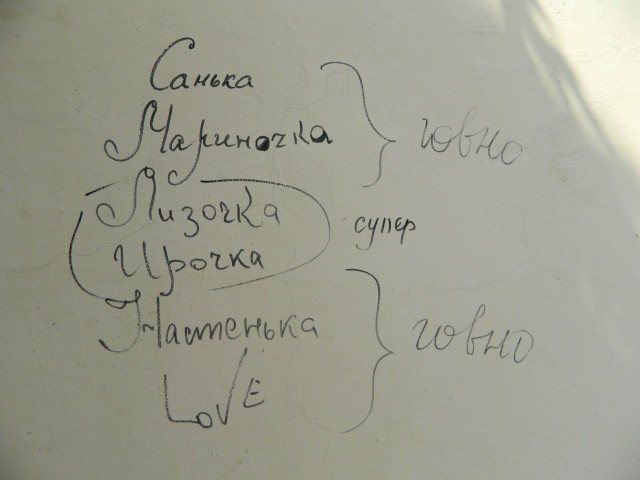 Санька
Мариночка
говно
Лизочка
Ирочка
супер
Настенька
LOVE
говно